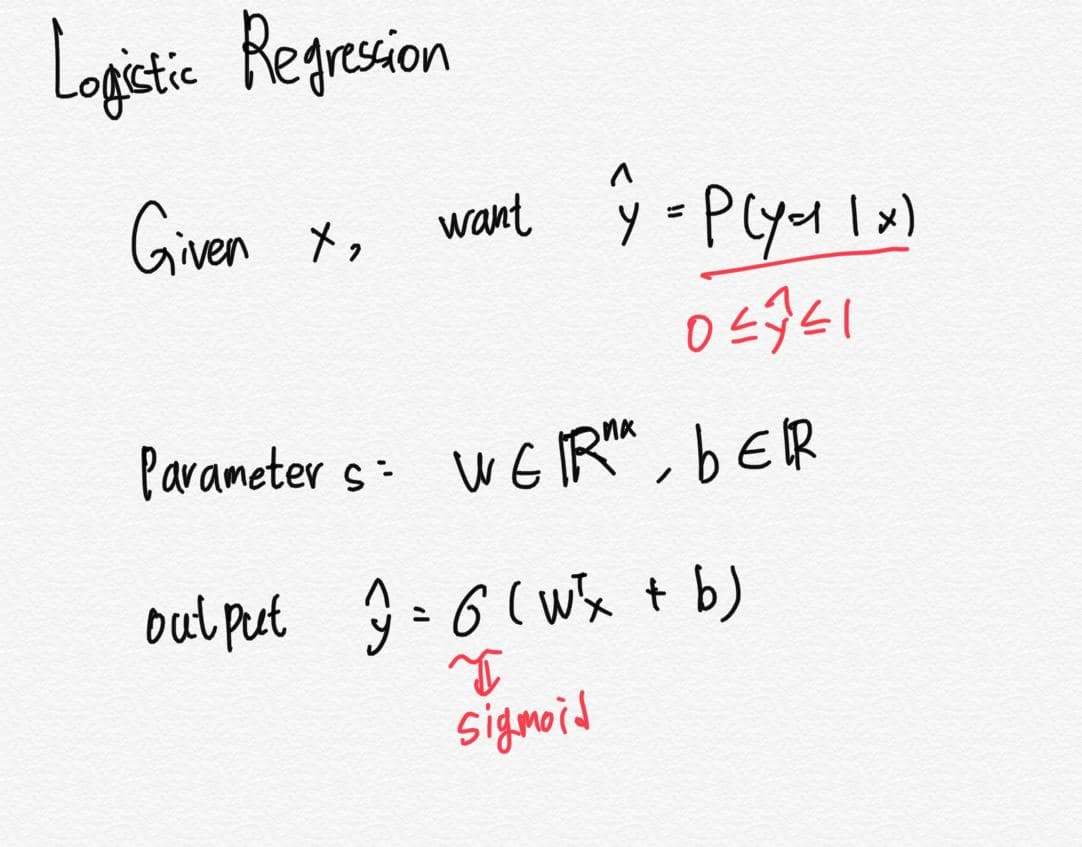 Logistic Regression
Given x, want ŷ = P(y=1 | x)
0 ≤ ŷ ≤ 1
Parameters: w ∈ ℝⁿˣ, b ∈ ℝ
output ŷ = σ(wᵀx + b)
sigmoid